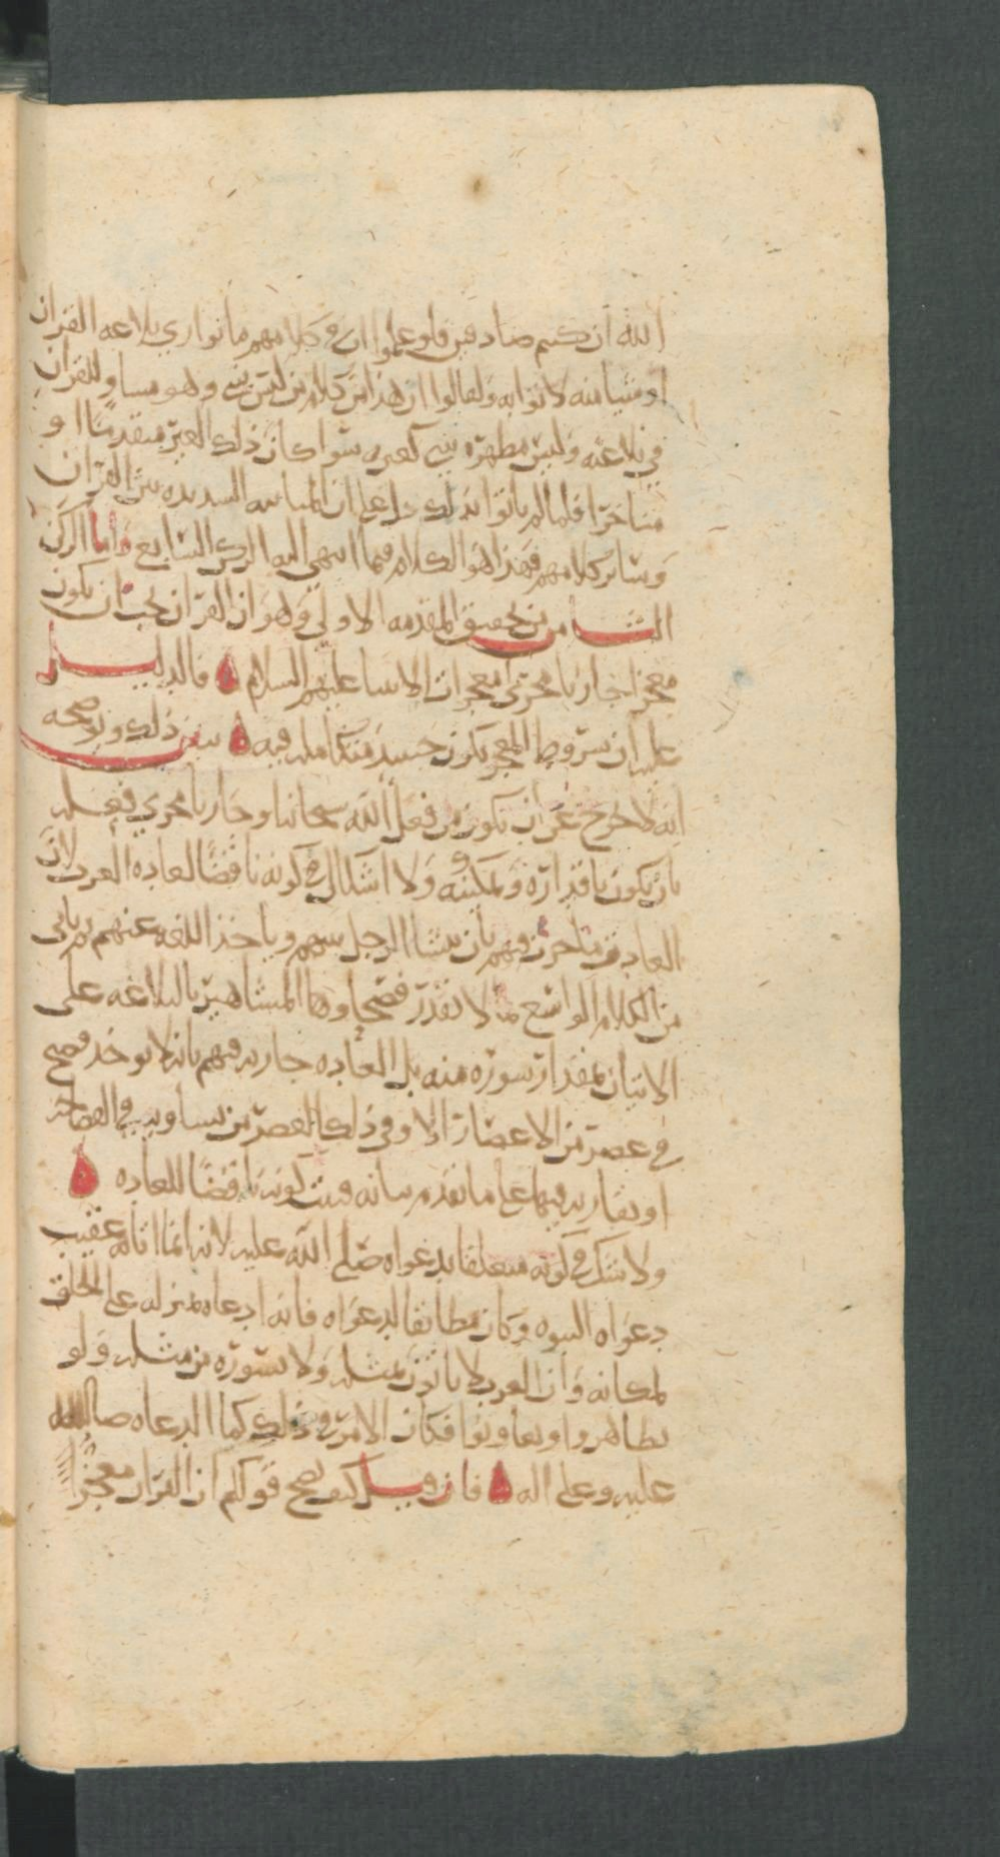 الله ان كنتم صادقين فلو علموا ان في كلامهم ما يوازي بلاغه القران
او شيا منه لاتوا به ولقالوا ان هذا من كلام من ليس بنبي وهو مساو للقران
في بلاغته وليس مظهره نبي كغيره سوا كان ذلك الغير متقدما او
متاخرا فلما لم ياتوا بذلك دل على ان المباينه الشديده بين القران
وسائر كلامهم فهذا هو الكلام فيما انتهى اليه الركن السابع واما الركن
الثامن من تحقيق المقدمه الاولى وهو ان القران يجب ان يكون
معجزا جاريا مجرى معجزات الانبيا عليهم السلام فالدليل
عليه ان شروط المعجز يكون حينئذ متكامله فيه يبين ذلك ويوضحه
انه لا يخرج عن ان يكون من فعل الله سبحانه او جاريا مجرى فعله
بان يكون باقداره وتمكينه ولا اشكال في كونه ناقضا لعاده العرب لان
العاده جاريه فيهم بان ينشا الرجل بينهم وياخذ اللغه عنهم ثم ياتي
من الكلام الواسع بما لا تقدر فصحاوها المشاهير بالبلاغه على
الاتيان بمقدار سوره منه بل العاده جاريه فيهم بانه لا يوجد فصيح
في عصر من الاعصار الا وفي ذلك العصر من يساويه في الفصاحه
او يقاربه فيها على ما تقدم بيانه فثبت كونه ناقضا للعاده
ولا شك في كونه متعلقا بدعواه صلى الله عليه لانه انما اتا به عقيب
دعواه النبوه وكان مطابقا لدعواه فانه ادعاه بمنزله على الخلق
لمكانه وان العرب لا ياتون بمثله ولا بسوره من مثله ولو
تظاهروا وتعاونوا فكان الامر في ذلك كما ادعاه صلى الله
عليه وعلى اله فان قيل كيف يصح قولكم ان القران معجزا